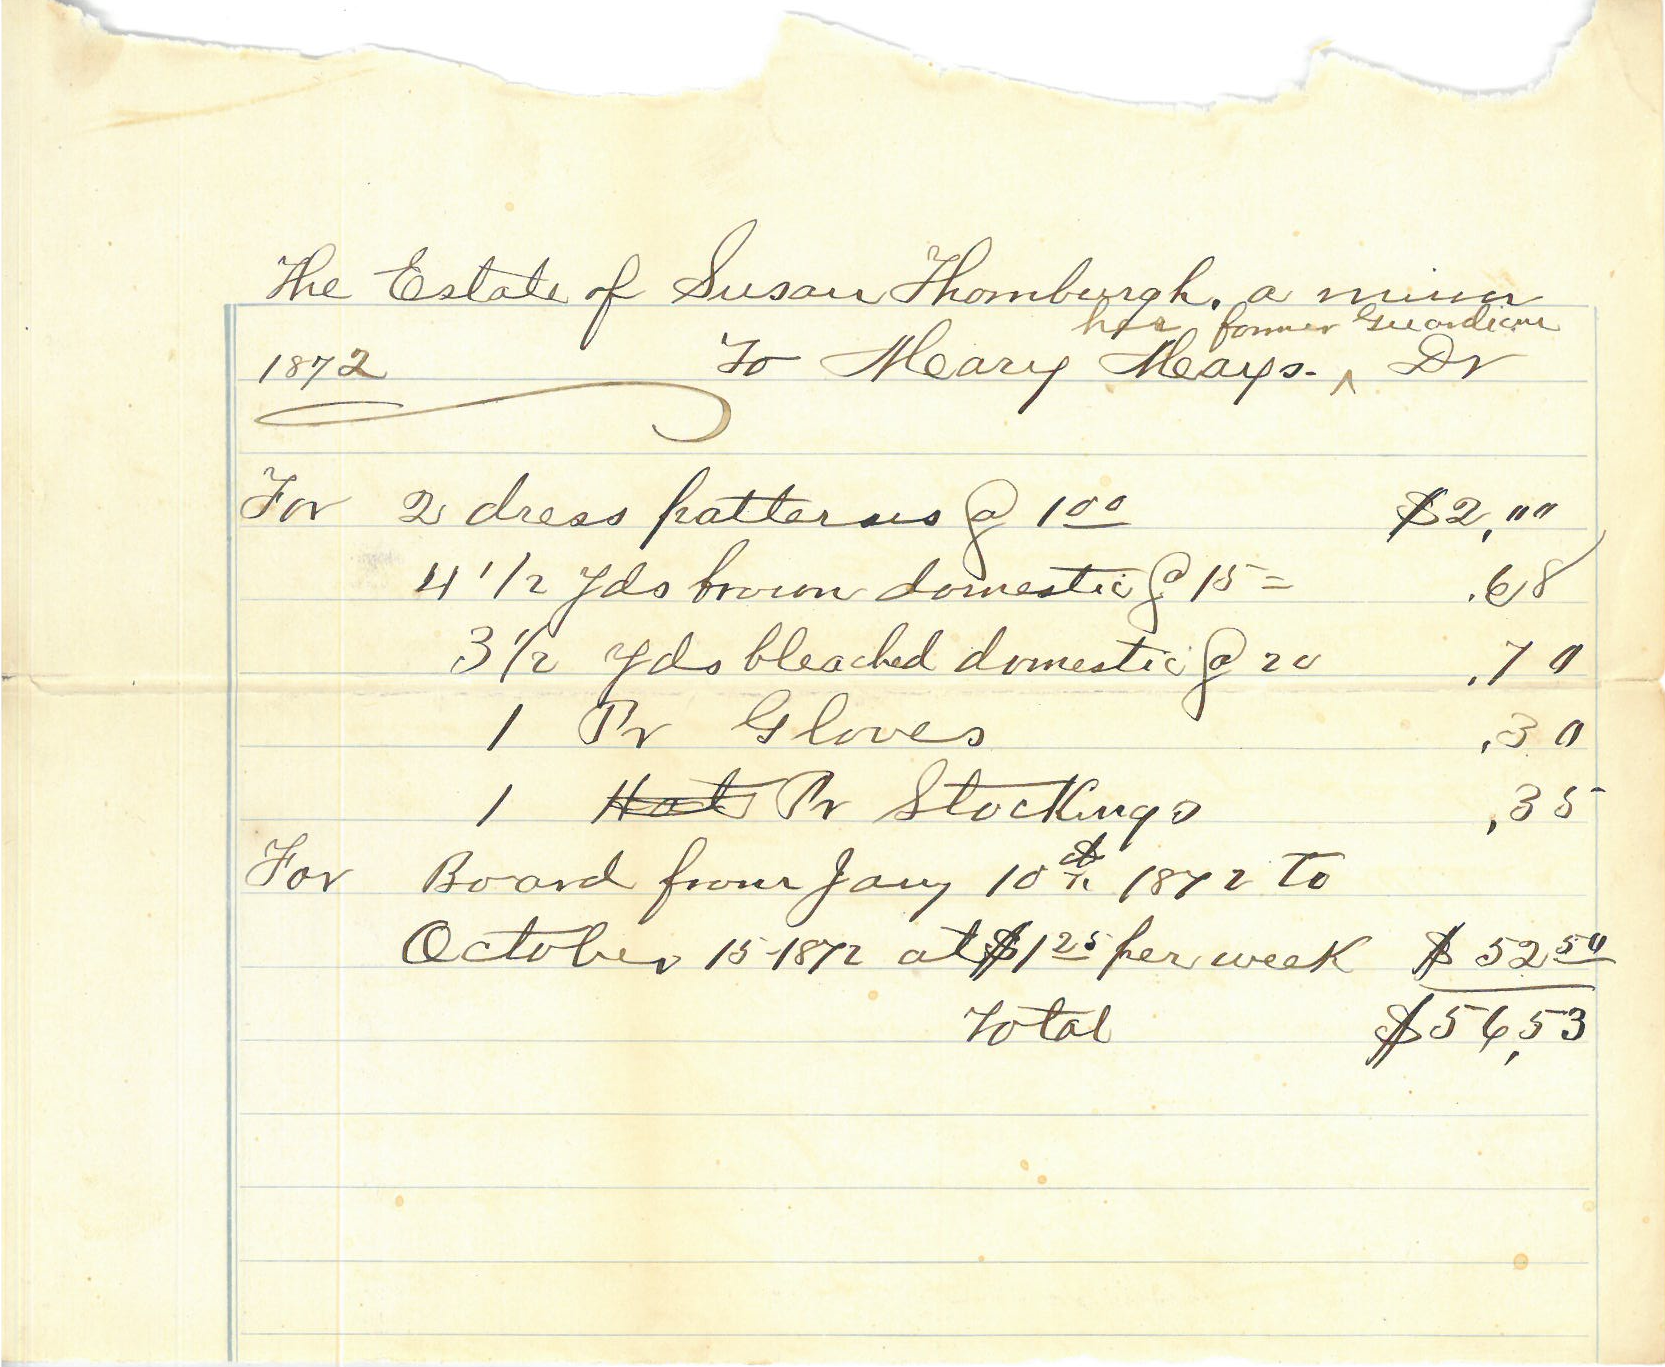 The Estate of Susan Thornburgh, a minor
her former Guardian
1872 To Meary Meays. ^ Dr
For 2 dress patterns @ 1 00 $2,00
4 1/2 Yds brown domestic @ 15 = .68
3 1/2 Yds bleached domestic @ 20 .70
1 Pr Gloves .30
1 Hat Pr Stockings .35
For Board from Jany 10th 1872 to
October 15-1872 at $1 25 per week $ 52 50
Total $56,53